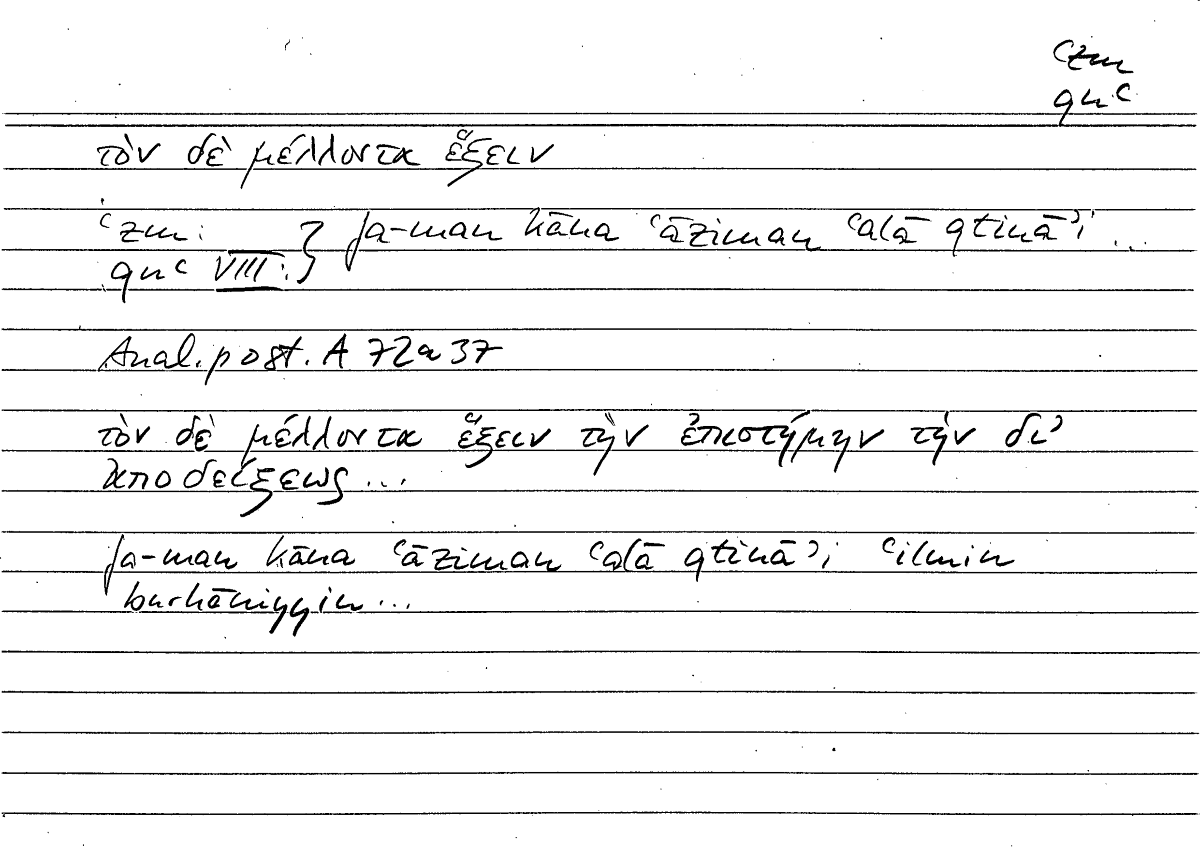 ʿzm
qnʿ
τὸν δὲ μέλλοντα ἕξειν
ʿzm: } fa-man kāna ʿāziman ʿalā qtināʾi ...
qnʿ VIII:
Anal. post. A 72a37
τὸν δὲ μέλλοντα ἕξειν τὴν ἐπιστήμην τὴν δι’
ἀποδείξεως ...
fa-man kāna ʿāziman ʿalā qtināʾi ʿilmin
burhāniyyin ...